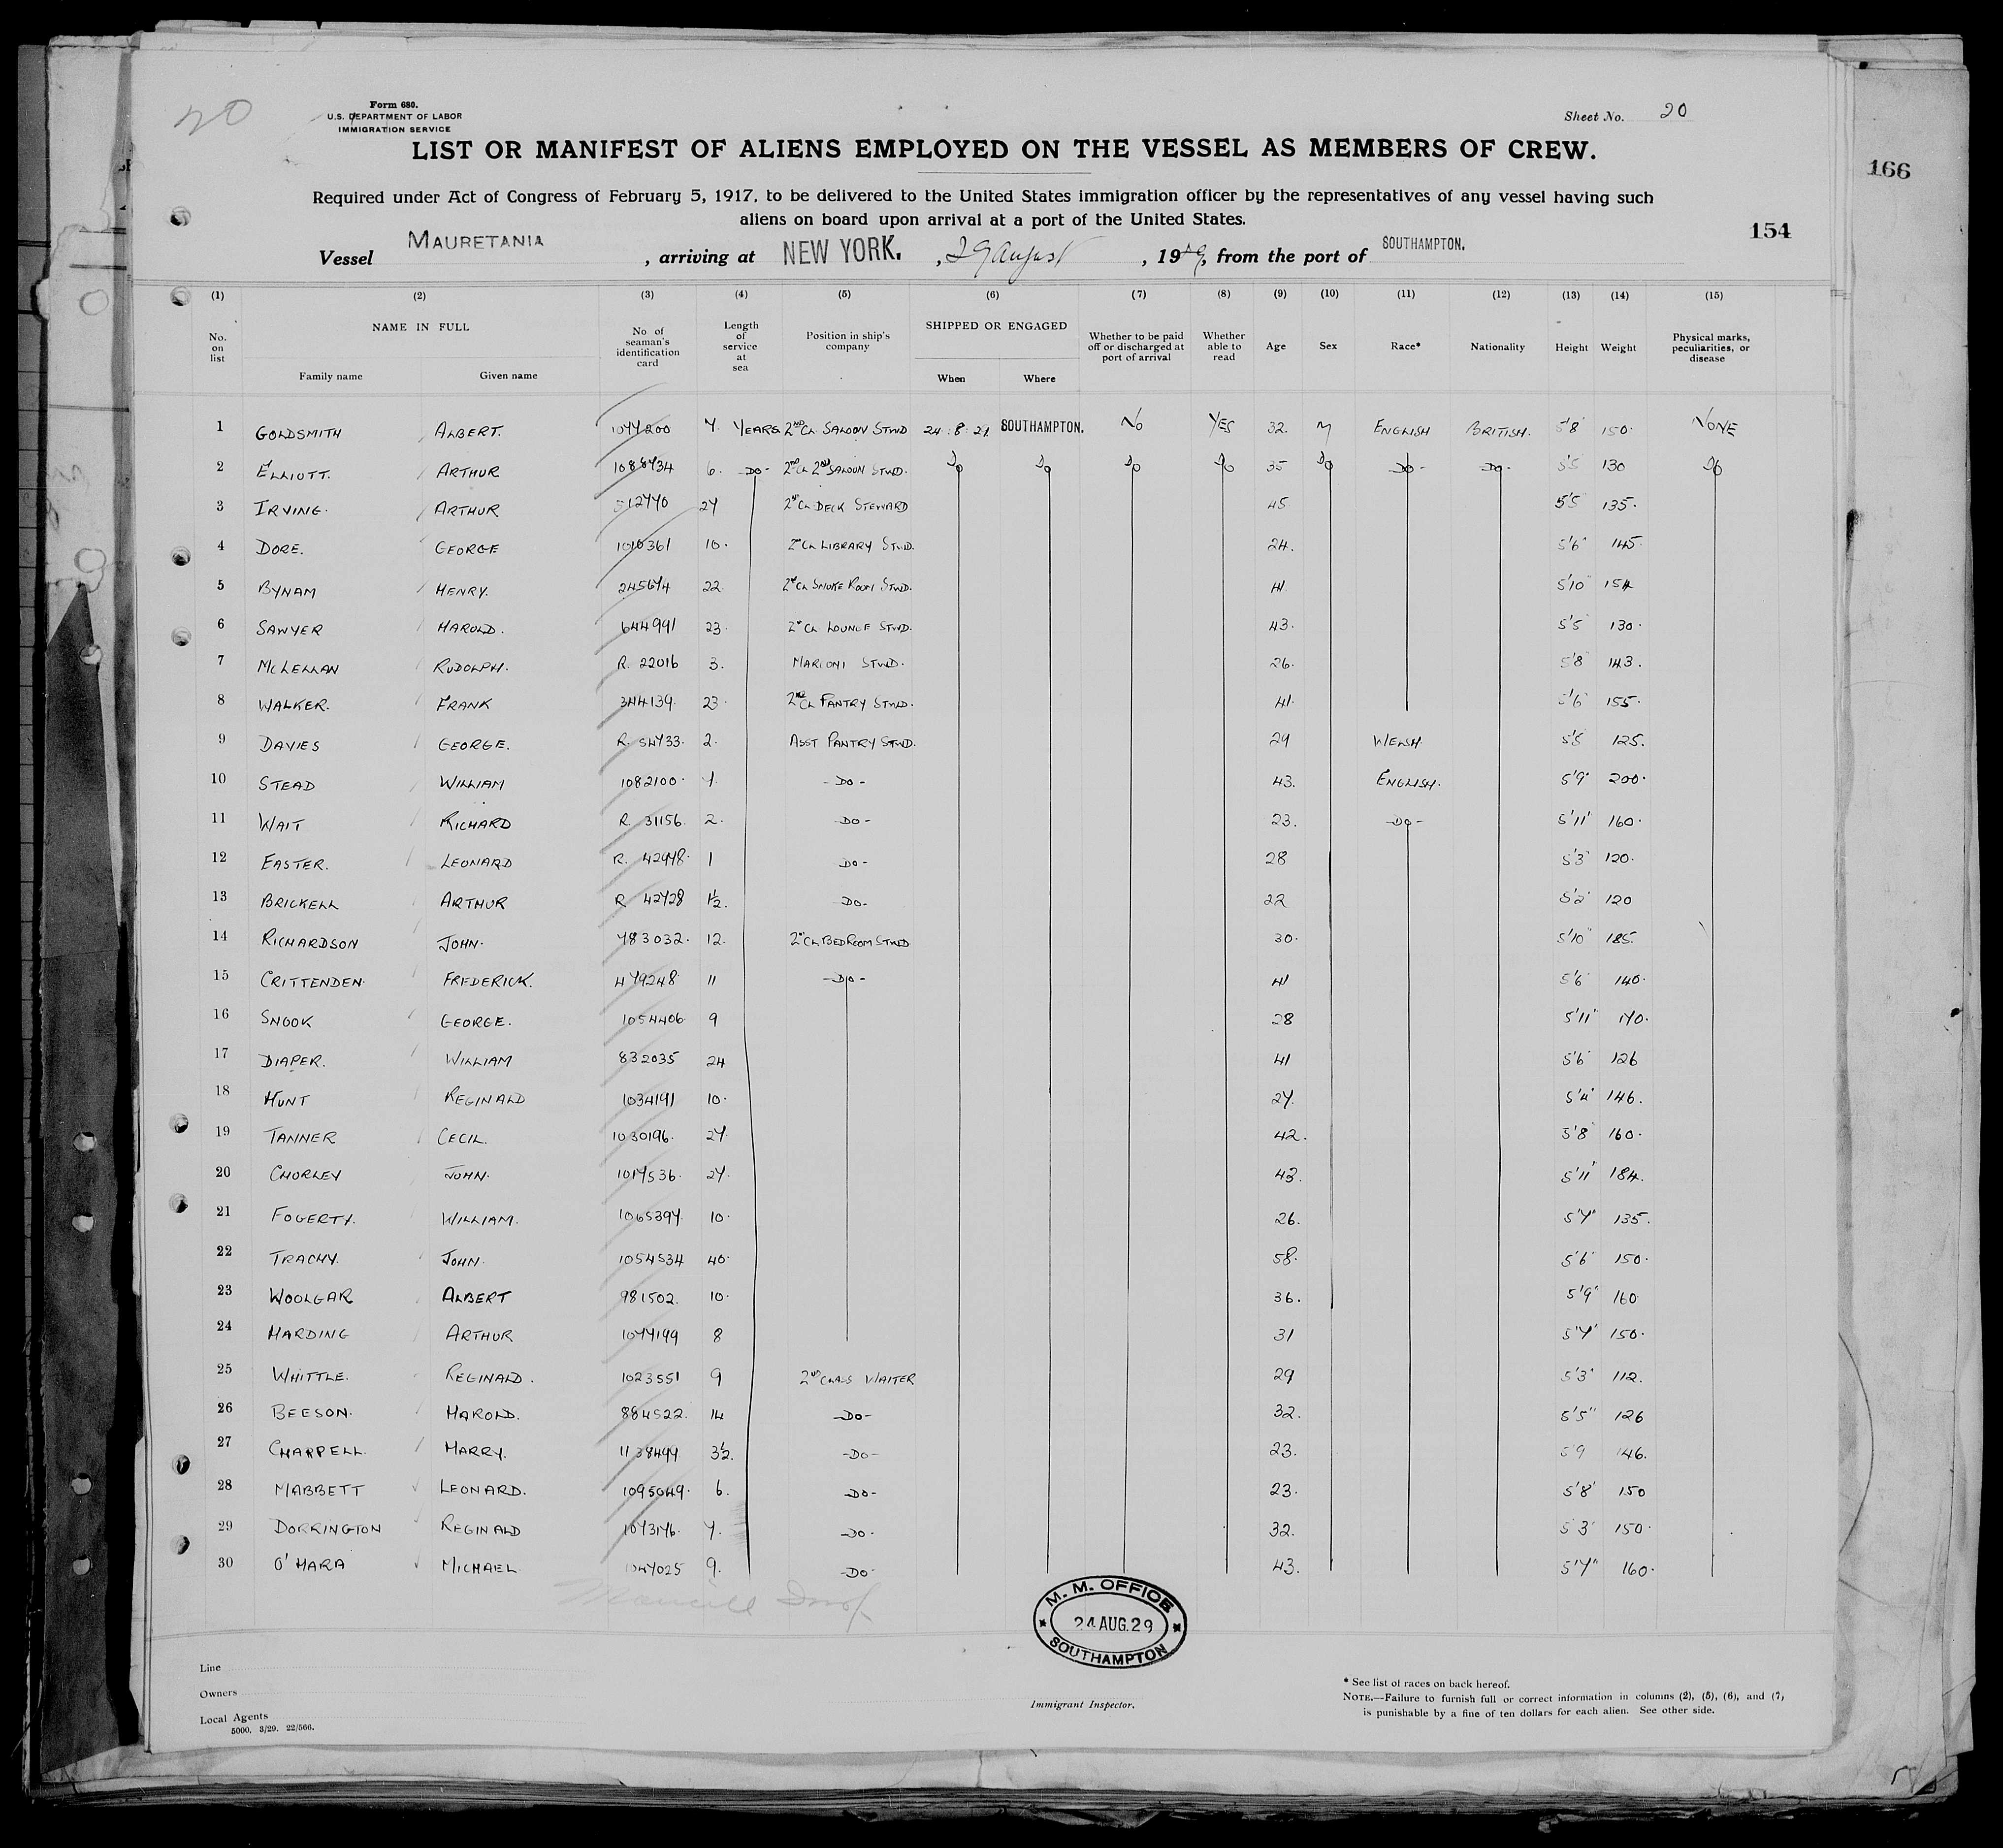 20
Form 680.
U.S. DEPARTMENT OF LABOR
IMMIGRATION SERVICE
Sheet No. 20
LIST OR MANIFEST OF ALIENS EMPLOYED ON THE VESSEL AS MEMBERS OF CREW.
166
Required under Act of Congress of February 5, 1917, to be delivered to the United States immigration officer by the representatives of any vessel having such
aliens on board upon arrival at a port of the United States.
154
Vessel MAURETANIA , arriving at NEW YORK. , 29 August , 1929, from the port of SOUTHAMPTON.
(1) (2) (3) (4) (5) (6) (7) (8) (9) (10) (11) (12) (13) (14) (15)
No. on list NAME IN FULL Family name Given name No of seaman's identification card Length of service at sea Position in ship's company SHIPPED OR ENGAGED When Where Whether to be paid off or discharged at port of arrival Whether able to read Age Sex Race* Nationality Height Weight Physical marks, peculiarities, or disease
1 GOLDSMITH ALBERT. 1077200 7. YEARS 2ND CL SALOON STWD 24.8.29. SOUTHAMPTON. NO YES 32. M ENGLISH BRITISH. 5'8" 150. NONE
2 ELLIOTT. ARTHUR 1088734 6. -DO- 2ND CL 2ND SALOON STWD. DO DO DO DO 35 DO -DO- -DO- 5'5" 130 DO
3 IRVING. ARTHUR 512770 27 2ND CL DECK STEWARD 45 5'5" 135.
4 DORE. GEORGE 1010361 10. 2ND CL LIBRARY STWD. 24. 5'6" 145.
5 BYNAM HENRY. 245674 22 2ND CL SMOKE ROOM STWD. 41 5'10" 154
6 SAWYER HAROLD. 644991 23. 2ND CL LOUNGE STWD. 43. 5'5" 130.
7 McLELLAN RUDOLPH. R. 22016 3. MARCONI STWD. 26. 5'8" 143.
8 WALKER. FRANK 344139. 23. 2ND CL PANTRY STWD. 41. 5'6" 155.
9 DAVIES GEORGE. R. 54733. 2. ASST PANTRY STWD. 29 WELSH. 5'5" 125.
10 STEAD WILLIAM 1082100. 7. -DO- 43. ENGLISH. 5'9" 200.
11 WAIT RICHARD R 31156. 2. -DO- 23. -DO- 5'11" 160.
12 EASTER. LEONARD R. 42978. 1 -DO- 28 5'3" 120.
13 BRICKELL ARTHUR R 42728 1½. -DO- 22 5'2" 120
14 RICHARDSON JOHN. 783032. 12. 2ND CL BEDROOM STWD 30. 5'10" 185.
15 CRITTENDEN. FREDERICK. 479248 11 -DO- 41 5'6" 140.
16 SNOOK GEORGE. 1054406 9 28 5'11" 170.
17 DIAPER. WILLIAM 832035 24 41 5'6" 126
18 HUNT REGINALD 1034191 10. 27. 5'4" 146.
19 TANNER CECIL. 1030196. 27. 42. 5'8" 160.
20 CHORLEY JOHN. 1017536. 27. 43. 5'11" 184.
21 FOGERTY. WILLIAM. 1065397. 10. 26. 5'7" 135.
22 TRACHY. JOHN. 1054534 40. 58. 5'6" 150.
23 WOOLGAR ALBERT 981502. 10. 36. 5'9" 160
24 HARDING ARTHUR 1077199 8 31 5'7" 150.
25 WHITTLE. REGINALD. 1023551 9 2ND CLASS WAITER 29 5'3" 112.
26 BEESON. HAROLD. 884522. 14 -DO- 32. 5'5" 126
27 CHAPPELL. HARRY. 1138499 3½. -DO- 23. 5'9 146.
28 MABBETT LEONARD. 1095049. 6. -DO- 23. 5'8" 150
29 DORRINGTON REGINALD 1073176. 7. -DO. 32. 5'3" 150.
30 O'HARA MICHAEL 1047025 9. -DO- 43. 5'7" 160.
M. M. OFFICE
24 AUG. 29
SOUTHAMPTON
Line
Owners
Local Agents
5000. 3/29. 22/566.
Immigrant Inspector.
* See list of races on back hereof.
NOTE.—Failure to furnish full or correct information in columns (2), (5), (6), and (7)
is punishable by a fine of ten dollars for each alien. See other side.